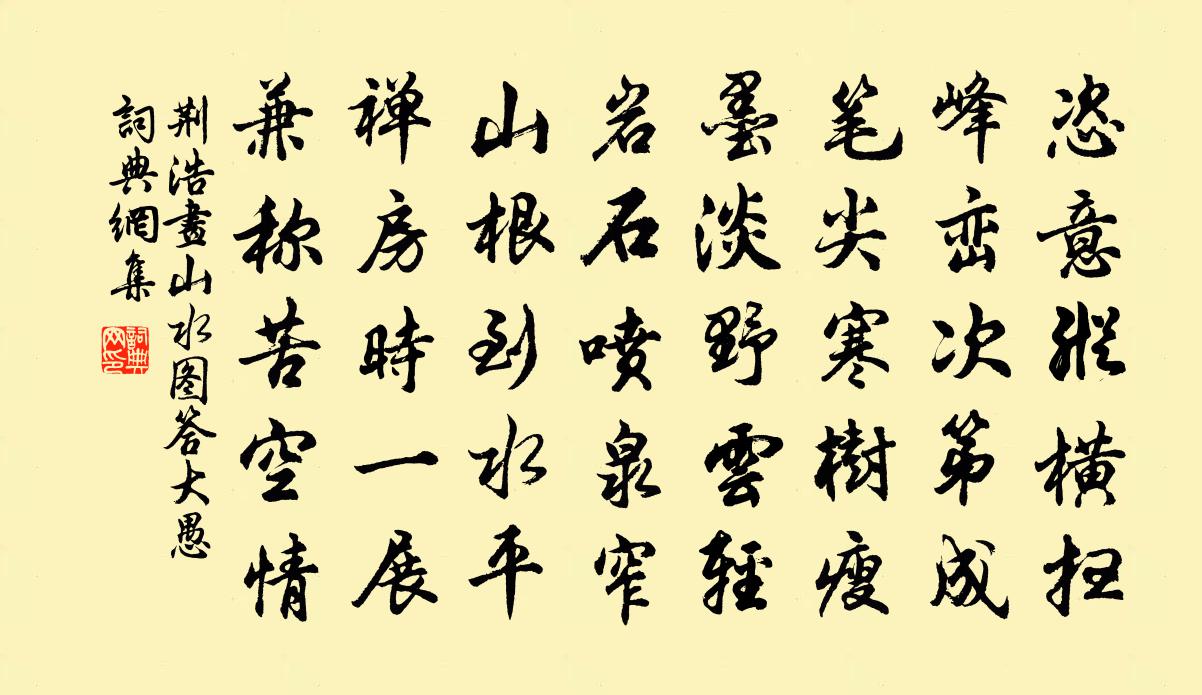 恣意縱横扫
峰峦次第成
笔尖寒樹瘦
墨淡野雲輕
岩石喷泉窄
山根到水平
禅房時一展
兼称苦空情
荆浩畫山水图答大愚
詞典網集
詞典網印